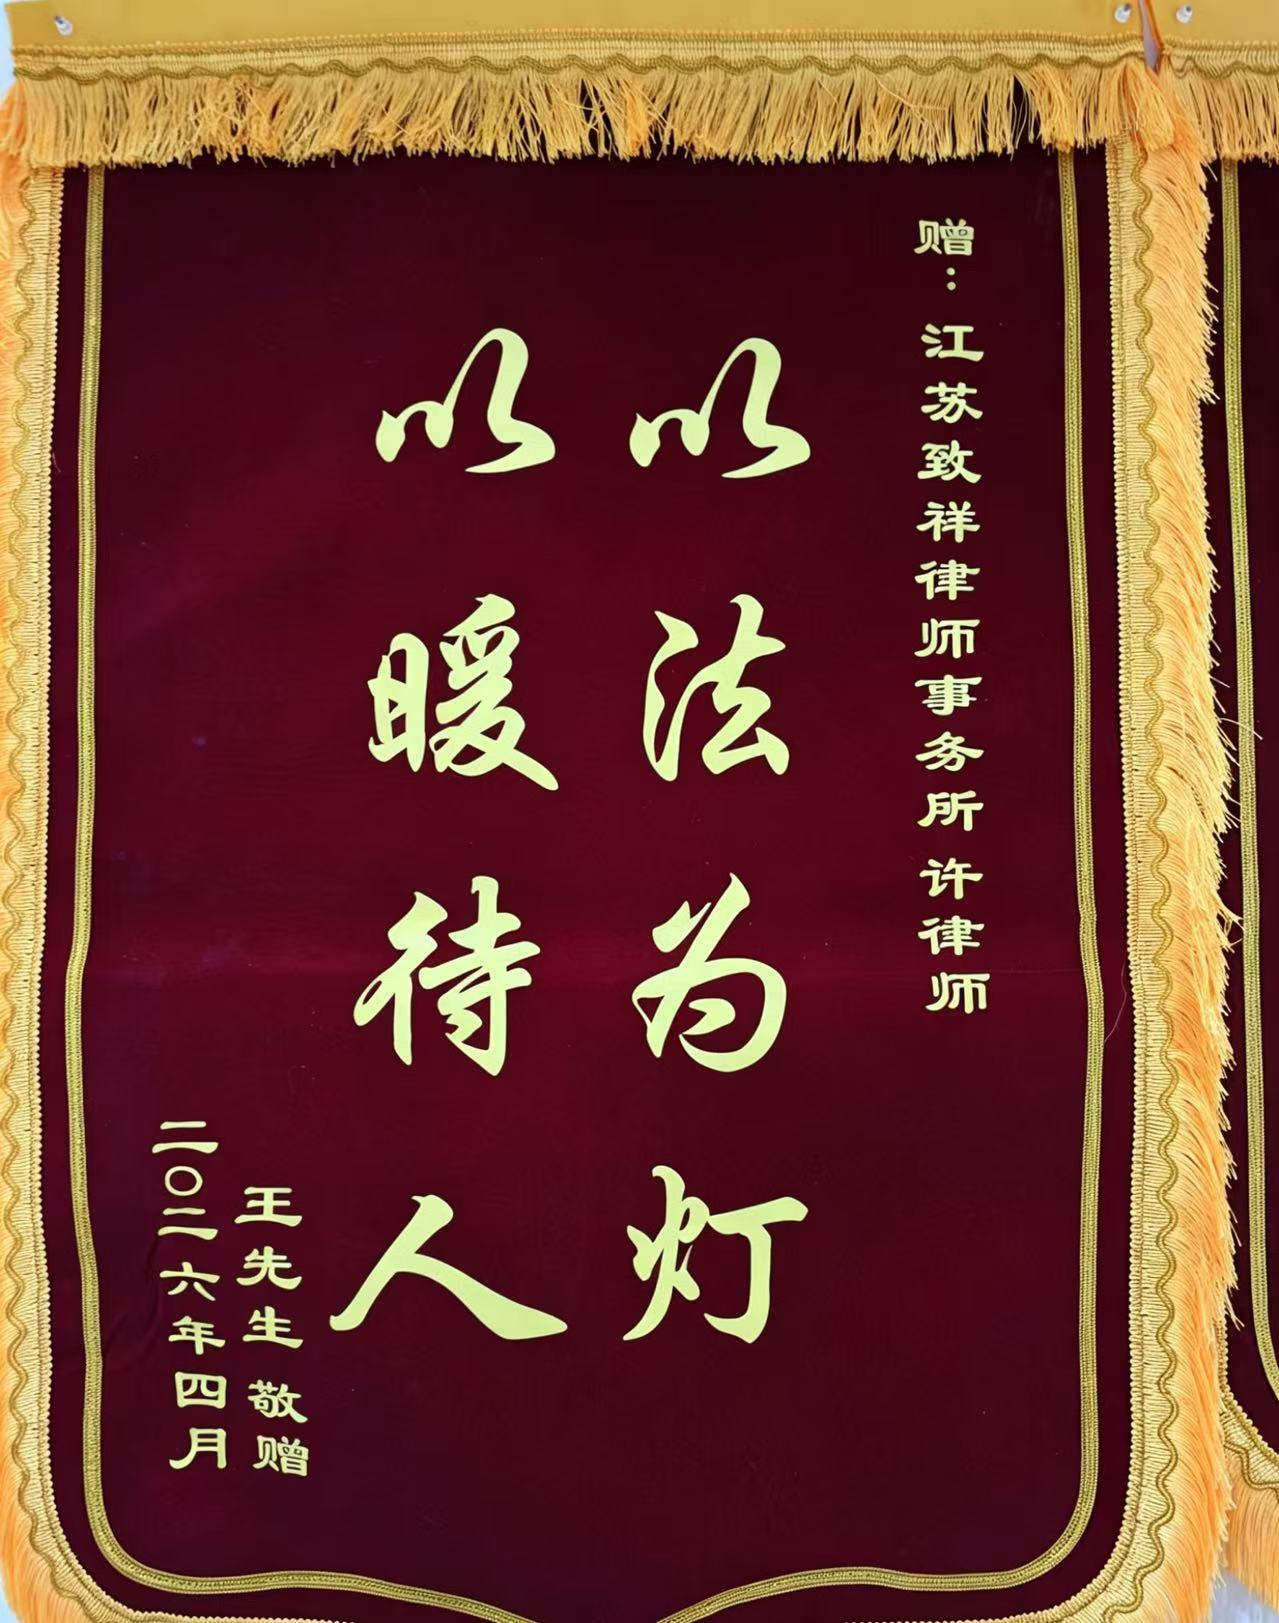 赠：江苏致祥律师事务所许律师
以法为灯
以暖待人
王先生 敬赠
二〇二六年四月